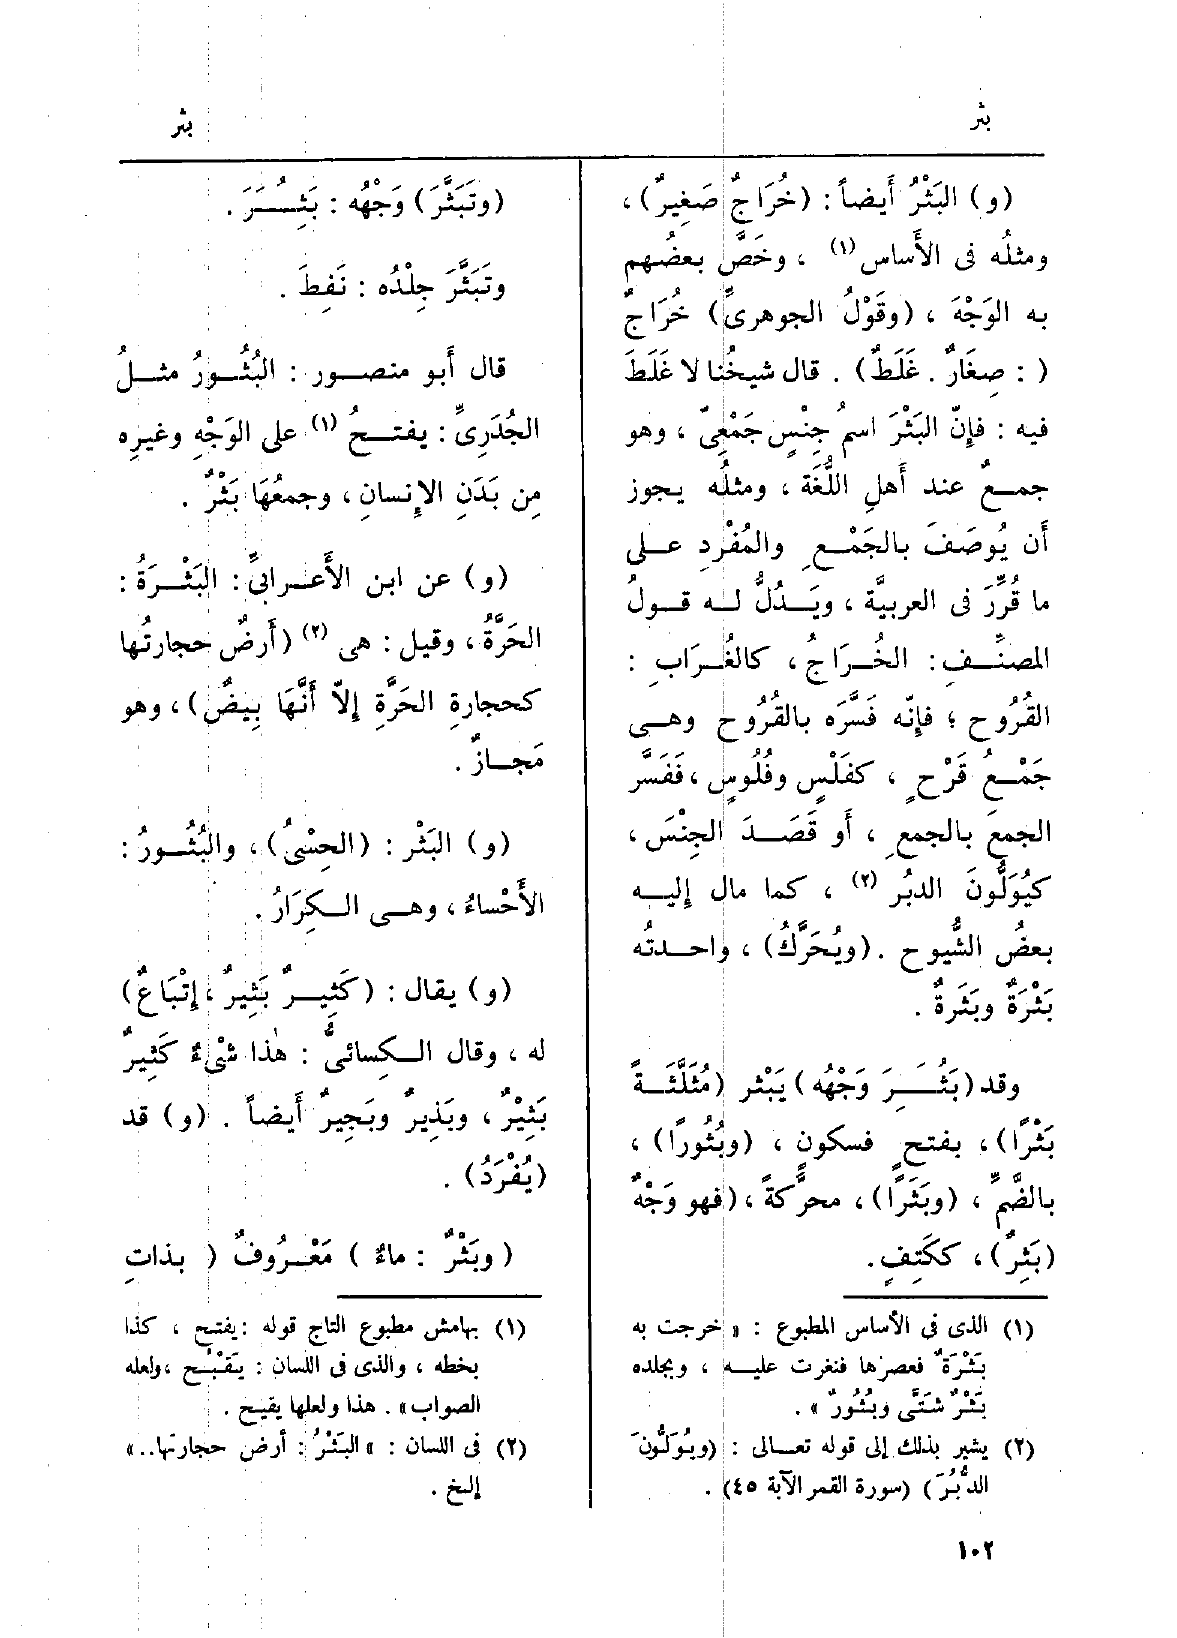 بثر
بثر
(و) البَثْرُ أيضاً : (خُرَاجٌ صَغِيرٌ) ،
ومثلُه فى الأَساس (١) ، وخَصَّ بعضُهم
به الوَجْهَ ، (وقَوْلُ الجوهرىِّ) خُرَاجٌ
( : صِغَارٌ . غَلَطٌ) . قال شيخُنا لا غَلَطَ
فيه : فإنّ البَثْرَ اسمُ جِنْسٍ جَمْعِىّ ، وهو
جمــعٌ عند أَهلِ اللُّغَة ، ومثلُه يجوز
أَن يُوصَفَ بالجَمْــعِ والمُفْرَدِ عــلى
ما قُرِّرَ فى العربيَّة ، ويَــدُلُّ لــه قــولُ
المصنِّــفِ : الخُــرَاجُ ، كالغُــرَابِ :
القُرُوح ؛ فإِنّه فَسَّرَه بالقُرُوح وهــى
جَمْــعُ قَرْحٍ ، كفَلْسٍ وفُلُوسٍ ، ففَسَّر
الجمعَ بالجمعِ ، أَو قَصَــدَ الجِنْسَ ،
كيُوَلُّونَ الدبُر (٢) ، كما مال إِليــه
بعضُ الشُّيوخ . (ويُحَرَّكُ) ، واحــدتُه
بَثْرَةٌ وبَثَرةٌ .
وقد (بَثُــِـرَ وَجْهُه) يَبْثر (مُثَلَّثَــةً
بَثْرًا) ، بفتحٍ فسكونٍ ، (وبُثُورًا) ،
بالضَّمِّ ، (وبَثَرًا) ، محرَّكةً ، (فهو وَجْهٌ
(بَثِرٌ) ، ككَتِفٍ .
(١) الذى فى الأساس المطبوع : « خرجت به
بَثْرَةٌ فعصرها فنغرت عليــه ، وبجلده
بَثْرٌ شَتَّى وبُثُورٌ » .
(٢) يشير بذلك إلى قوله تعــالى : (ويُوَلُّونَ
الدُّبُرَ) (سورة القمر الآية ٤٥) .
(وتَبَثَّرَ) وَجْهُه : بَثِــُــرَ .
وتَبَثَّرَ جِلْدُه : نَفِطَ .
قال أَبو منصــور : البُثُــورُ مثــلُ
الجُدَرِىِّ : يفتــحُ (١) على الوَجْهِ وغيرِه
مِن بَدَنِ الإِنسانِ ، وجمعُهَا بَثْرٌ .
(و) عن ابن الأَعــرابىِّ : البَثْــرَةُ :
الحَرَّةُ ، وقيل : هى (٢) (أَرضٌ حجارتُها
كحجارةِ الحَرَّةِ إِلاّ أَنَّهَا بِيضٌ) ، وهو
مَجــازٌ .
(و) البَثْر : (الحِسْىُ) ، والبُثُــورُ :
الأَحْساءُ ، وهــى الــكِرَارُ .
(و) يقال : (كَثِيــرٌ بَثِيرٌ ، إِتْبَاعٌ)
له ، وقال الــكِسائىُّ : هٰذا شىْءٌ كَثِيرٌ
بَثِيْرٌ ، وبَذِيرٌ وبَجِيرٌ أَيضاً . (و) قد
(يُفْرَدُ) .
(وبَثْرٌ : ماءٌ) مَعْــرُوفٌ (بــذاتِ
(١) بهامش مطبوع التاج قوله : يفتح ، كذا
بخطه ، والذى فى اللسان : يَتَقَبَّح ، ولعله
الصواب » . هذا ولعلها يقيح .
(٢) فى اللسان : « البَثْرُ : أرض حجارتها .. »
إلخ .
١٠٢